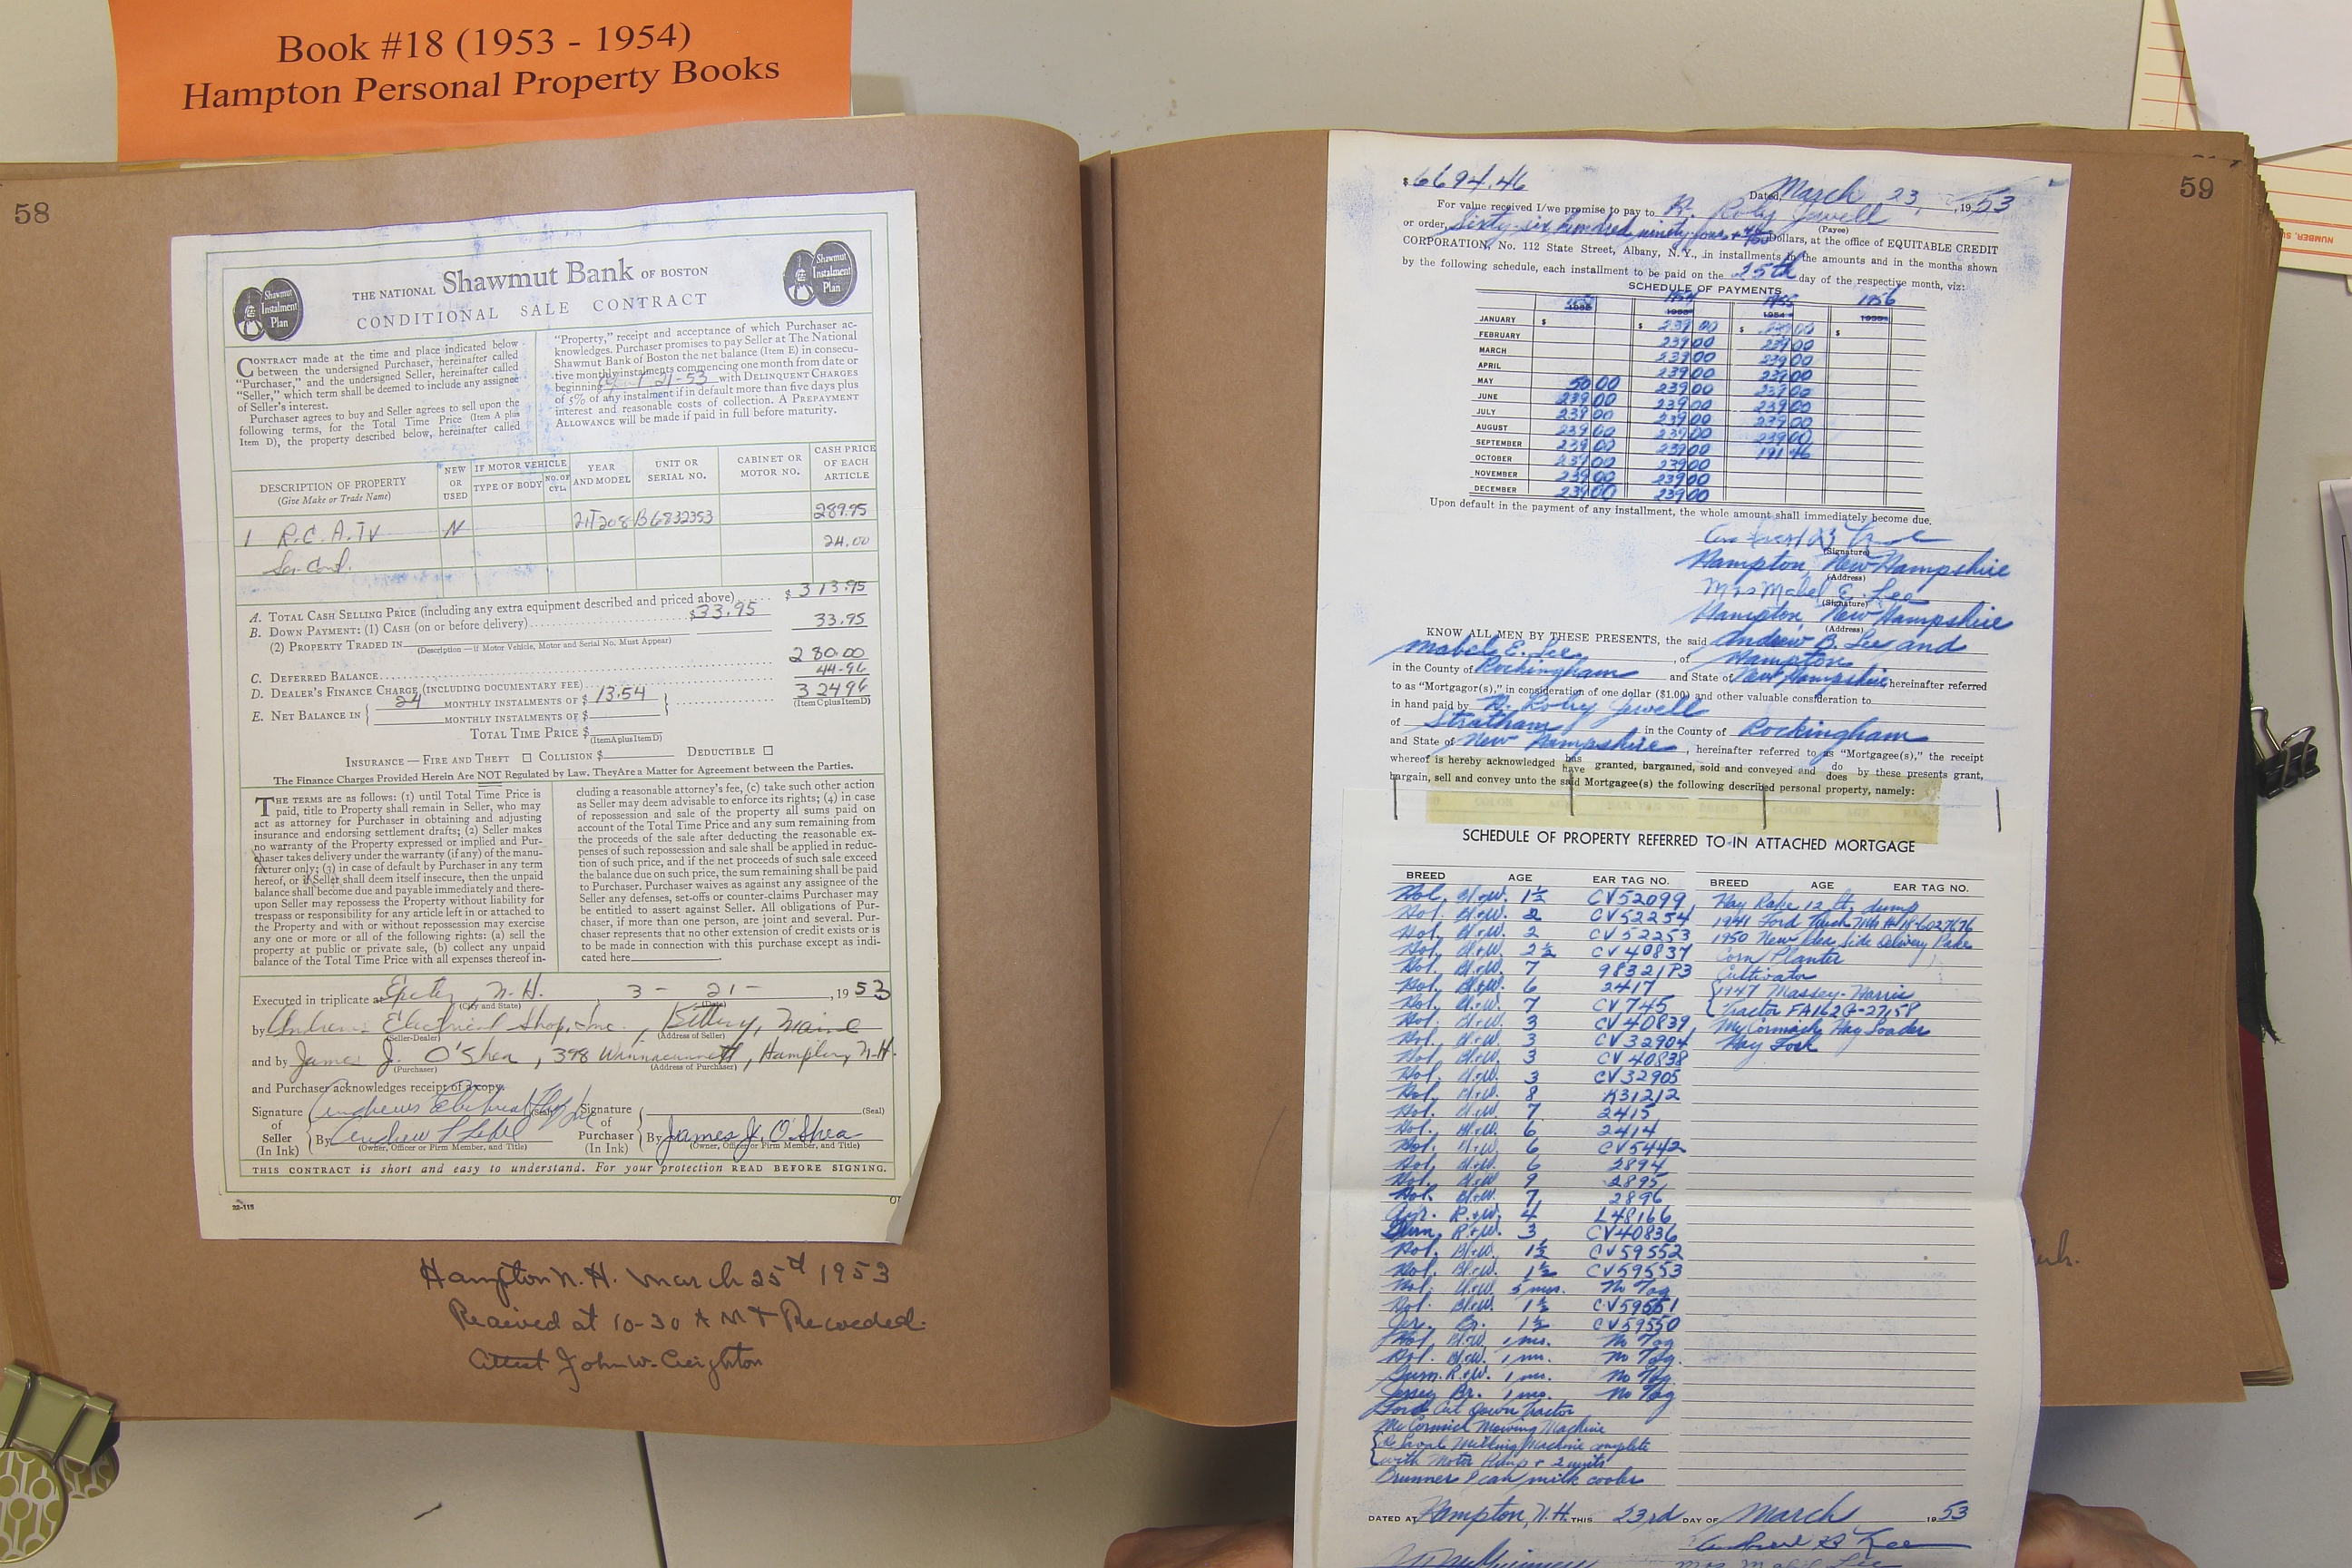 Book #18 (1953 - 1954)
Hampton Personal Property Books
58
Shawmut Instalment Plan
THE NATIONAL Shawmut Bank OF BOSTON
CONDITIONAL SALE CONTRACT
Shawmut Instalment Plan
CONTRACT made at the time and place indicated below
between the undersigned Purchaser, hereinafter called
"Purchaser," and the undersigned Seller, hereinafter called
"Seller," which term shall be deemed to include any assignee
of Seller's interest.
Purchaser agrees to buy and Seller agrees to sell upon the
following terms, for the Total Time Price (Item A plus
Item D), the property described below, hereinafter called
"Property," receipt and acceptance of which Purchaser ac-
knowledges. Purchaser promises to pay Seller at The National
Shawmut Bank of Boston the net balance (Item E) in consecu-
tive monthly instalments commencing one month from date or
beginning April 21-53 with DELINQUENT CHARGES
of 5% of any instalment if in default more than five days plus
interest and reasonable costs of collection. A PREPAYMENT
ALLOWANCE will be made if paid in full before maturity.
DESCRIPTION OF PROPERTY
(Give Make or Trade Name)
NEW OR USED
IF MOTOR VEHICLE
TYPE OF BODY
NO. OF CYL.
YEAR AND MODEL
UNIT OR SERIAL NO.
CABINET OR MOTOR NO.
CASH PRICE OF EACH ARTICLE
1 R.C.A. TV N 21T208 B6832353 289.95
24.00
A. TOTAL CASH SELLING PRICE (including any extra equipment described and priced above) $ 313.95
B. DOWN PAYMENT: (1) CASH (on or before delivery) $33.95
(2) PROPERTY TRADED IN 33.95
(Description — if Motor Vehicle, Motor and Serial No. Must Appear)
C. DEFERRED BALANCE 280.00
D. DEALER'S FINANCE CHARGE (INCLUDING DOCUMENTARY FEE) 44.96
E. NET BALANCE IN { 24 MONTHLY INSTALMENTS OF $ 13.54 } 324.96
MONTHLY INSTALMENTS OF $ (Item C plus Item D)
TOTAL TIME PRICE $
(Item A plus Item D)
INSURANCE — FIRE AND THEFT □ COLLISION $ DEDUCTIBLE □
The Finance Charges Provided Herein Are NOT Regulated by Law. They Are a Matter for Agreement between the Parties.
THE TERMS are as follows: (1) until Total Time Price is
paid, title to Property shall remain in Seller, who may
act as attorney for Purchaser in obtaining and adjusting
insurance and endorsing settlement drafts; (2) Seller makes
no warranty of the Property expressed or implied and Pur-
chaser takes delivery under the warranty (if any) of the manu-
facturer only; (3) in case of default by Purchaser in any term
hereof, or if Seller shall deem itself insecure, then the unpaid
balance shall become due and payable immediately and there-
upon Seller may repossess the Property without liability for
trespass or responsibility for any article left in or attached to
the Property and with or without repossession may exercise
any one or more or all of the following rights: (a) sell the
property at public or private sale, (b) collect any unpaid
balance of the Total Time Price with all expenses thereof in-
cluding a reasonable attorney's fee, (c) take such other action
as Seller may deem advisable to enforce its rights; (4) in case
of repossession and sale of the property all sums paid on
account of the Total Time Price and any sum remaining from
the proceeds of the sale after deducting the reasonable ex-
penses of such repossession and sale shall be applied in reduc-
tion of such price, and if the net proceeds of such sale exceed
the balance due on such price, the sum remaining shall be paid
to Purchaser. Purchaser waives as against any assignee of the
Seller any defenses, set-offs or counter-claims Purchaser may
be entitled to assert against Seller. All obligations of Pur-
chaser, if more than one person, are joint and several. Pur-
chaser represents that no other extension of credit exists or is
to be made in connection with this purchase except as indi-
cated here
Executed in triplicate at Exeter, N.H. , 3 - 21 - , 19 53
(City and State) (Date)
by Andrews Electrical Shop, Inc., Kittery, Maine
(Seller-Dealer) (Address of Seller)
and by James J. O'Shea, 398 Winnacunnett, Hampton, N.H.
(Purchaser) (Address of Purchaser)
and Purchaser acknowledges receipt of a copy.
Signature of Seller (In Ink) Andrews Electrical Shop Inc (Seal)
By
(Owner, Officer or Firm Member, and Title)
Signature of Purchaser (In Ink) (Seal)
By James J. O'Shea
(Owner, Officer or Firm Member, and Title)
THIS CONTRACT is short and easy to understand. For your protection READ BEFORE SIGNING.
22-115
Hampton N.H. March 25th 1953
Received at 10-30 A M & Recorded.
Attest John W. Creighton
59
$6694.46
Dated March 23, 1953
For value received I/we promise to pay to H. Roby Jewell
(Payee)
or order, Sixty-six hundred ninety-four + 46/100 Dollars, at the office of EQUITABLE CREDIT
CORPORATION, No. 112 State Street, Albany, N. Y., in installments in the amounts and in the months shown
by the following schedule, each installment to be paid on the 25th day of the respective month, viz:
SCHEDULE OF PAYMENTS
1953 1954 1955 1956
JANUARY $ $ 239 00 $ 239 00 $
FEBRUARY 239 00 239 00
MARCH 239 00 239 00
APRIL 239 00 239 00
MAY 50 00 239 00 239 00
JUNE 239 00 239 00 239 00
JULY 239 00 239 00 239 00
AUGUST 239 00 239 00 239 00
SEPTEMBER 239 00 239 00 191 46
OCTOBER 239 00 239 00
NOVEMBER 239 00 239 00
DECEMBER 239 00 239 00
Upon default in the payment of any installment, the whole amount shall immediately become due.
(Signature)
Hampton, New Hampshire
(Address)
Mrs Mabel E. Lee
(Signature)
Hampton New Hampshire
(Address)
KNOW ALL MEN BY THESE PRESENTS, the said Andrew B. Lee and
Mabel E. Lee, of Hampton
in the County of Rockingham and State of New Hampshire hereinafter referred
to as "Mortgagor(s)," in consideration of one dollar ($1.00) and other valuable consideration to
in hand paid by H. Roby Jewell
of Stratham, in the County of Rockingham
and State of New Hampshire, hereinafter referred to as "Mortgagee(s)," the receipt
whereof is hereby acknowledged has have granted, bargained, sold and conveyed and do does by these presents grant,
bargain, sell and convey unto the said Mortgagee(s) the following described personal property, namely:
SCHEDULE OF PROPERTY REFERRED TO IN ATTACHED MORTGAGE
BREED AGE EAR TAG NO. BREED AGE EAR TAG NO.
Hol. Bl+W. 1½ CV52099 Hay Rake 12 ft. dump
Hol. Bl+W. 2 CV52254 1941 Ford Truck
Hol. Bl+W. 2 CV52253 1950 New Idea Side Delivery Rake
Hol. Bl+W. 2½ CV40837 Corn Planter
Hol. Bl+W. 7 98321P3 Cultivator
Hol. Bl+W. 6 2417 {1947 Massey-Harris
Hol. Bl+W. 7 CV745 Tractor FA162G-27158
Hol. Bl+W. 3 CV40839 McCormack Hay Loader
Hol. Bl+W. 3 CV32904 Hay Fork
Hol. Bl+W. 3 CV40838
Hol. Bl+W. 3 CV32905
Hol. Bl+W. 8 K31212
Hol. Bl+W. 7 2415
Hol. Bl+W. 6 2414
Hol. Bl+W. 6 CV5442
Hol. Bl+W. 6 2894
Hol. Bl+W. 9 2895
Hol. Bl+W. 7 2896
Ayr. R+W. 4 L48166
Guern. R+W. 3 CV40836
Hol. Bl+W. 1½ CV59552
Hol. Bl+W. 1½ CV59553
Hol. Bl+W. 5 mos. No Tag
Hol. Bl+W. 1½ CV59551
Jer. Br. 1½ CV59550
Hol. Bl+W. 1 mo. No Tag
Hol. Bl+W. 1 mo. No Tag.
Guern. R+W. 1 mo. No Tag
Jersey Br. 1 mo. No Tag
Ford Cut Down Tractor
McCormick Mowing Machine
{De Laval Milking Machine complete
with Motor Pump + 2 units
Brunner 8 can milk cooler
DATED AT Hampton, N.H. THIS 23rd DAY OF March 1953
Andrew B Lee
Mrs Mabel Lee